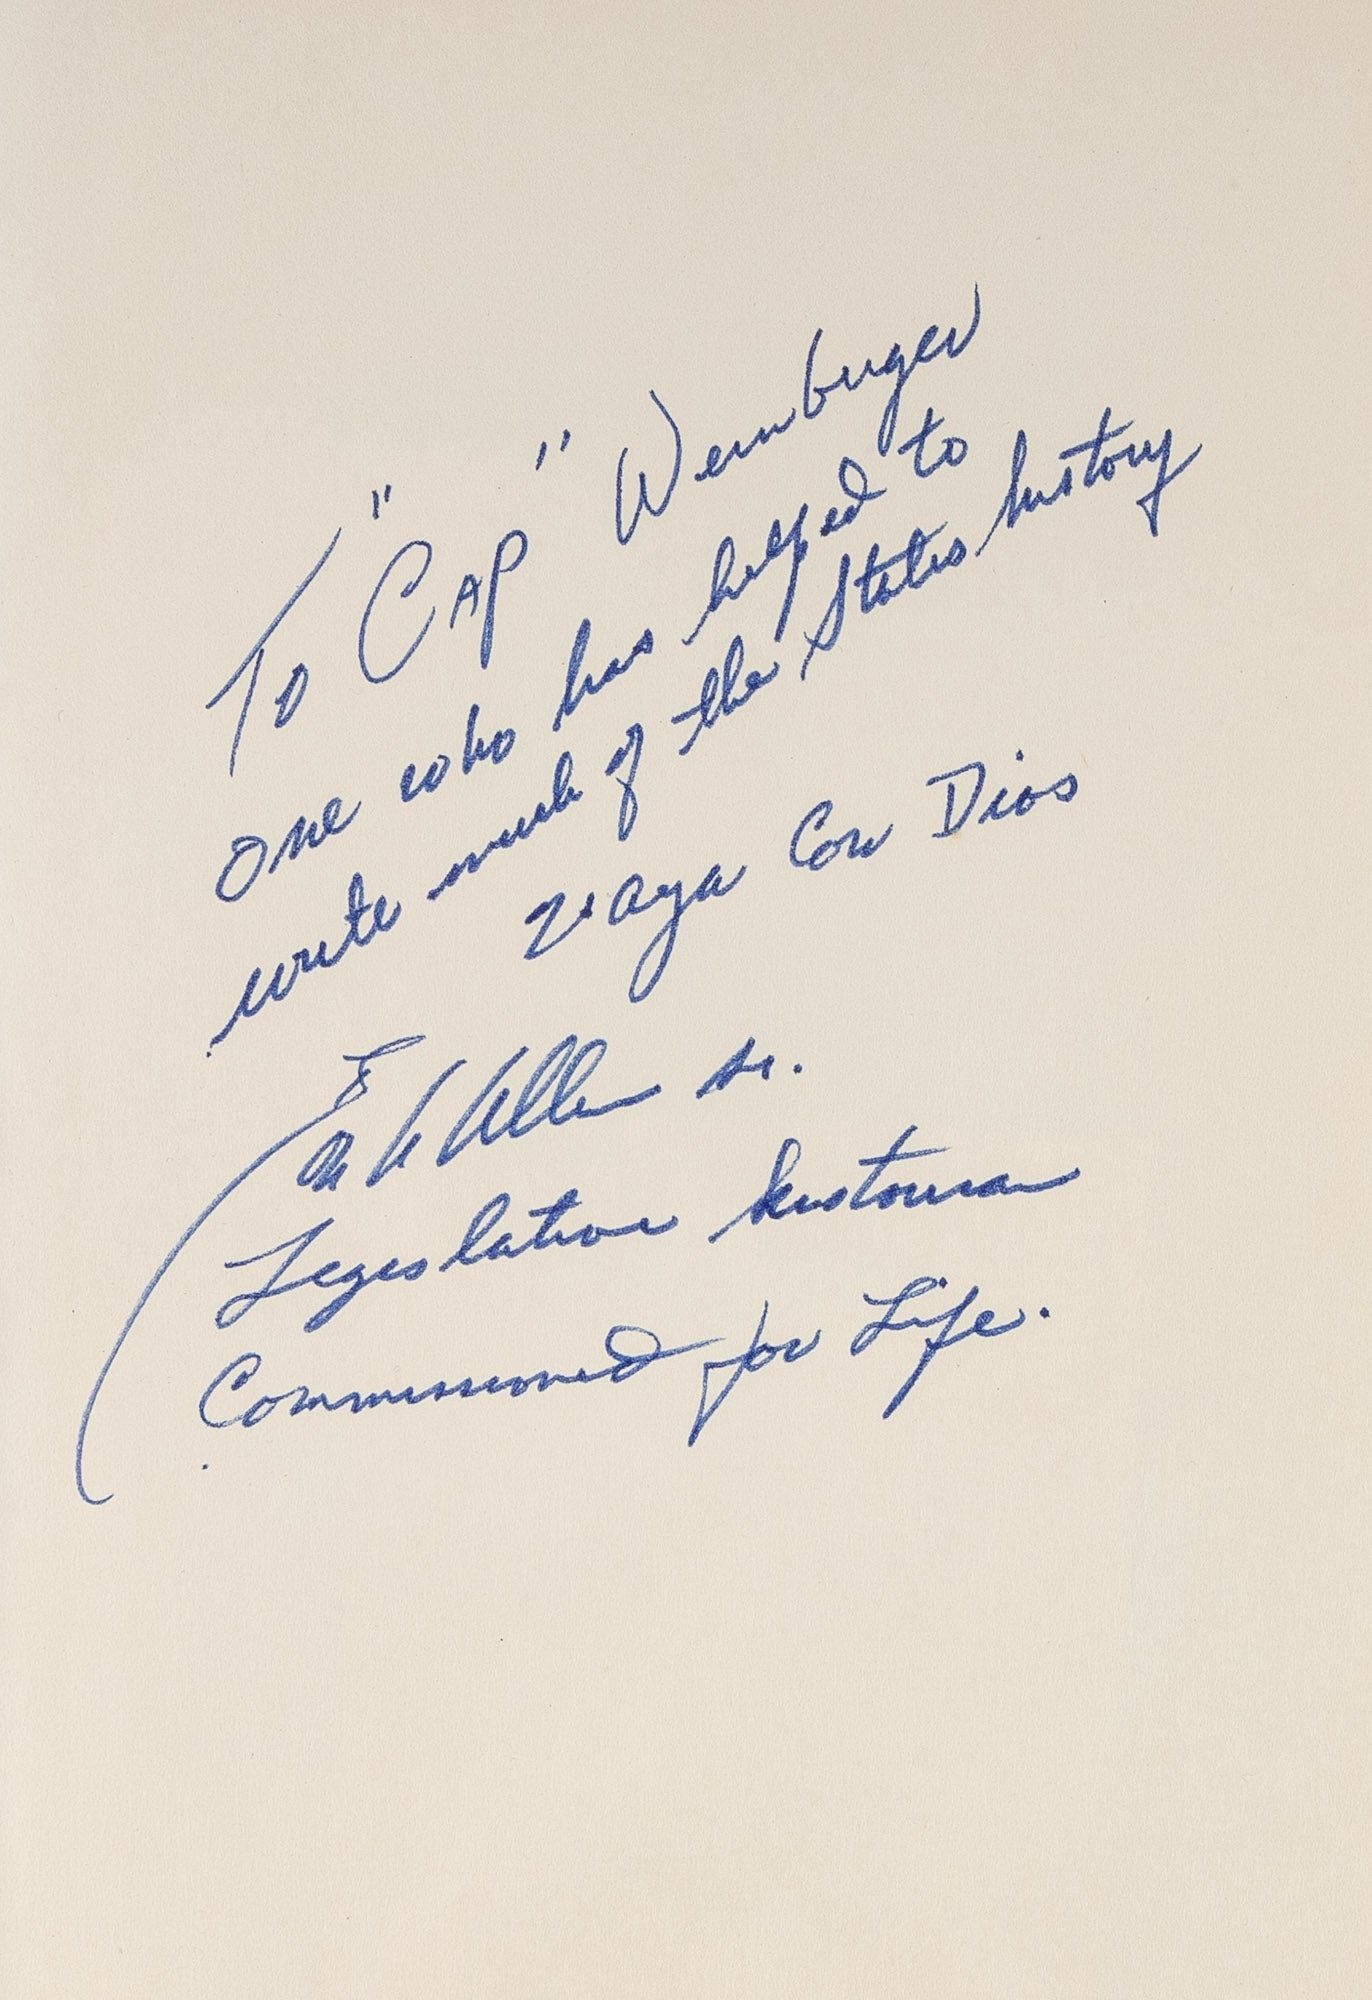 To "Cap" Weinburger
one who has helped to
write much of the States history
Vaya Con Dios
Allen sr.
Legislative historian
Commissioned for Life.